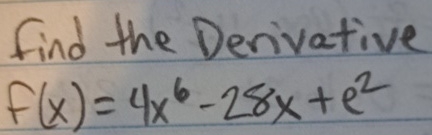 find the Derivative
f(x) = 4x⁶ - 28x + e²